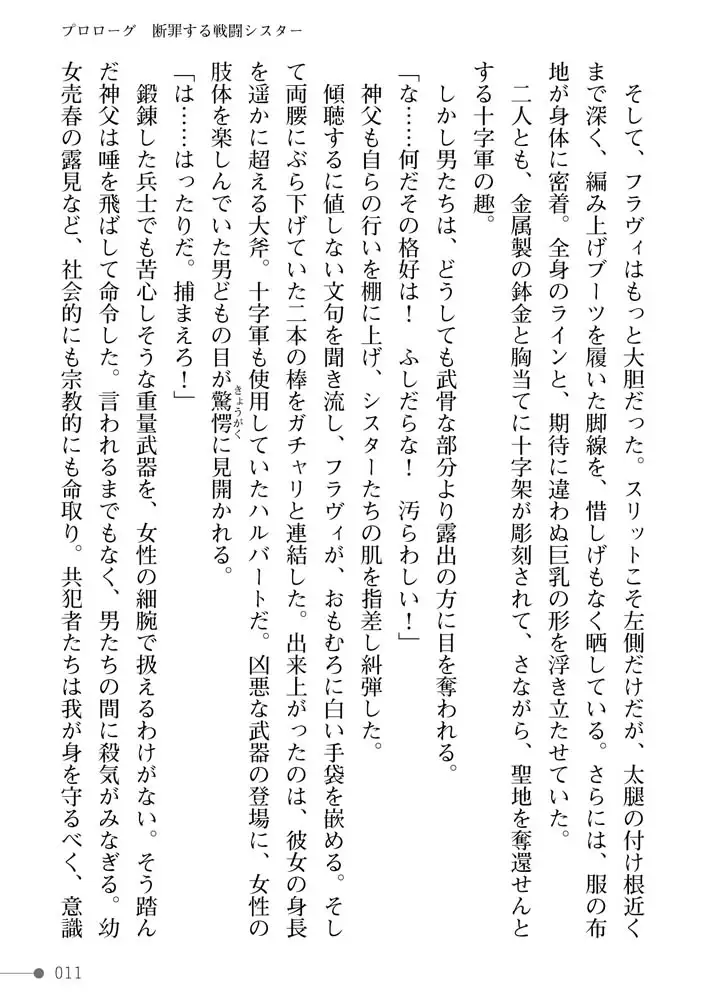 プロローグ　断罪する戦闘シスター
　そして、フラヴィはもっと大胆だった。スリットこそ左側だけだが、太腿の付け根近く
まで深く、編み上げブーツを履いた脚線を、惜しげもなく晒している。さらには、服の布
地が身体に密着。全身のラインと、期待に違わぬ巨乳の形を浮き立たせていた。
　二人とも、金属製の鉢金と胸当てに十字架が彫刻されて、さながら、聖地を奪還せんと
する十字軍の趣。
　しかし男たちは、どうしても武骨な部分より露出の方に目を奪われる。
「な……何だその格好は！　ふしだらな！　汚らわしい！」
　神父も自らの行いを棚に上げ、シスターたちの肌を指差し糾弾した。
　傾聴するに値しない文句を聞き流し、フラヴィが、おもむろに白い手袋を嵌める。そし
て両腰にぶら下げていた二本の棒をガチャリと連結した。出来上がったのは、彼女の身長
を遥かに超える大斧。十字軍も使用していたハルバートだ。凶悪な武器の登場に、女性の
肢体を楽しんでいた男どもの目が驚愕に見開かれる。
きょうがく
「は……はったりだ。捕まえろ！」
　鍛錬した兵士でも苦心しそうな重量武器を、女性の細腕で扱えるわけがない。そう踏ん
だ神父は唾を飛ばして命令した。言われるまでもなく、男たちの間に殺気がみなぎる。幼
女売春の露見など、社会的にも宗教的にも命取り。共犯者たちは我が身を守るべく、意識
011